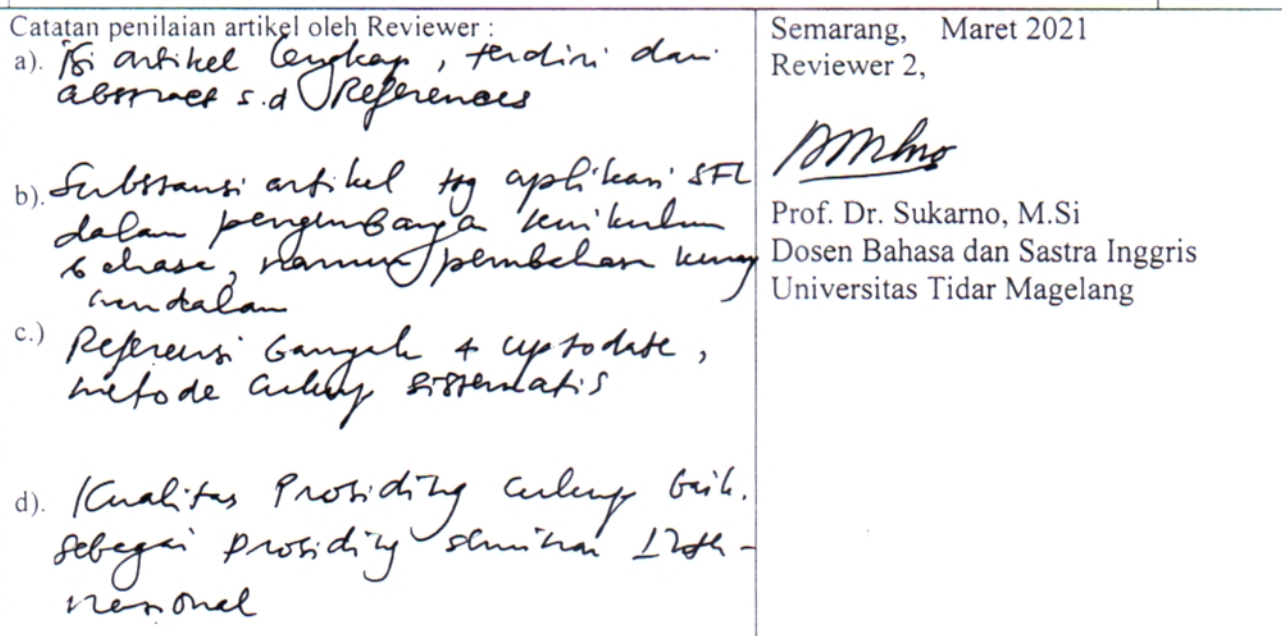 Catatan penilaian artikel oleh Reviewer :
a). isi artikel lengkap, terdiri dari
abstract s.d References
b). Substansi artikel ttg aplikasi SFL
dalam pengembangan kurikulum
bahasa, namun pembahasan kurang
mendalam
c.) Referensi banyak + uptodate,
metode cukup sistematis
d). Kualitas Prosiding cukup baik.
sebagai prosiding seminar Inter-
nasional
Semarang, Maret 2021
Reviewer 2,
Prof. Dr. Sukarno, M.Si
Dosen Bahasa dan Sastra Inggris
Universitas Tidar Magelang